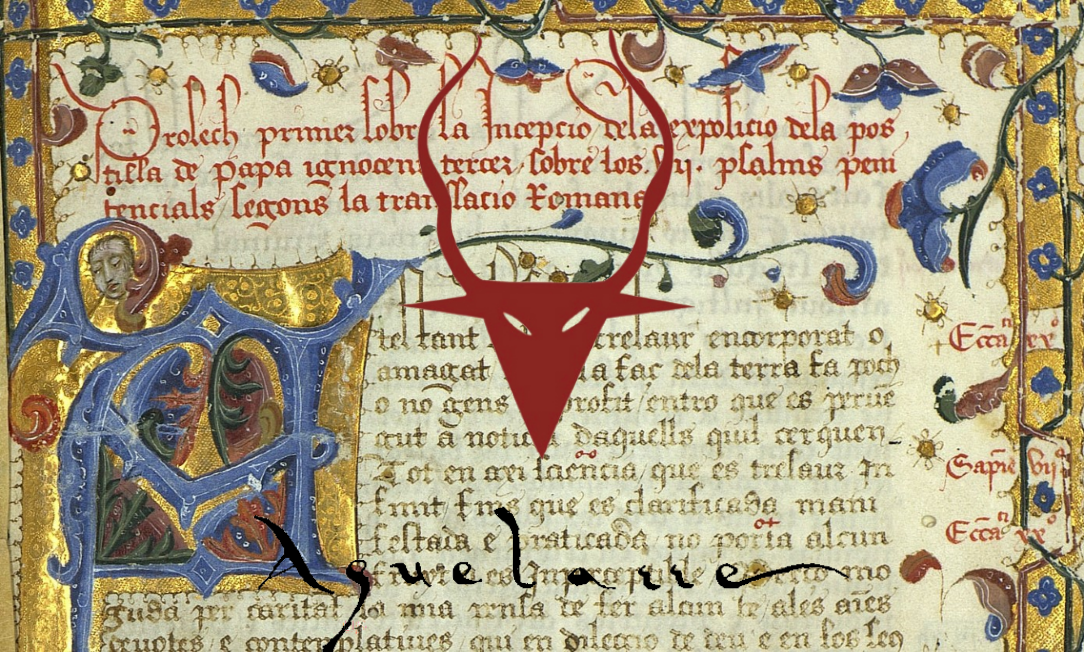 Prolech primer sobre la Incepcio dela expolicio dela pos
tilla de papa ignocent tercer sobre los .vii. psalms peni
tencials segons la translacio Romana
tresaur encorporat o
amagat la fac dela terra fa poch
o no gens profit entro que es perue
gut a noticia daquells quil cerquen
Tot en axi sciencia que es tresaur In
finit sino que es clarificada mani
festada e praticada no porta alcun
fruyt es Imperceptible
guda per caritat la mia pensa de fer alcun be ales aĩes
deuotes e contemplatiues qui en dileccio de deu e en los seu
Ecca xx
Sapie vii
Ecca xx
Aquelarre